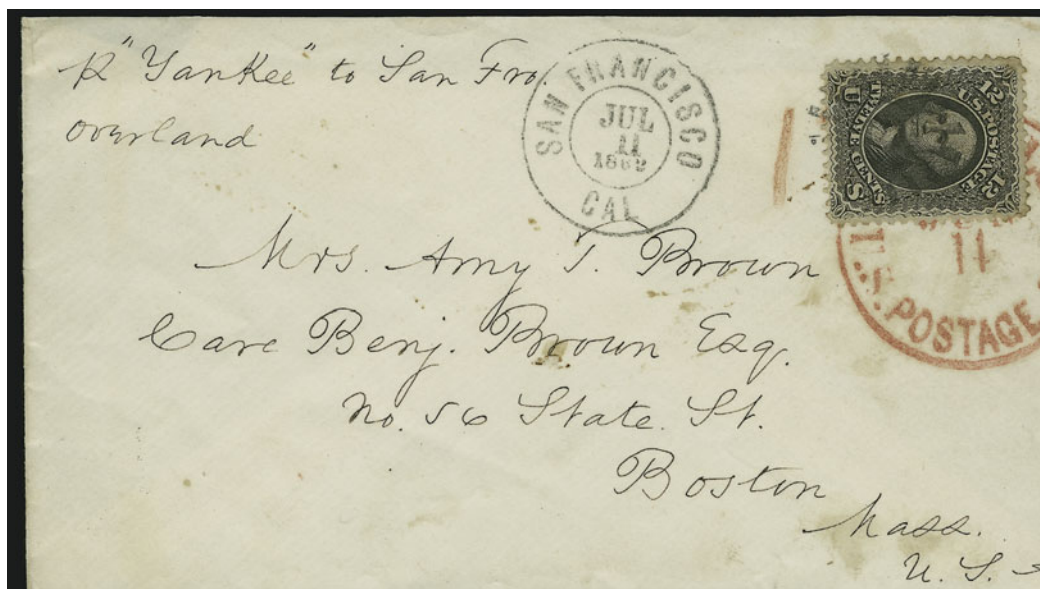 "Yankee" to San Fro.
overland
SAN FRANCISCO
JUL
11
CAL
12 12
U.S. POSTAGE
TWELVE CENTS
U S
U.S. POSTAGE
Mrs. Amy T. Brown
Care Benj. Brown Esq.
No. 56 State. St.
Boston
Mass.
U. S.